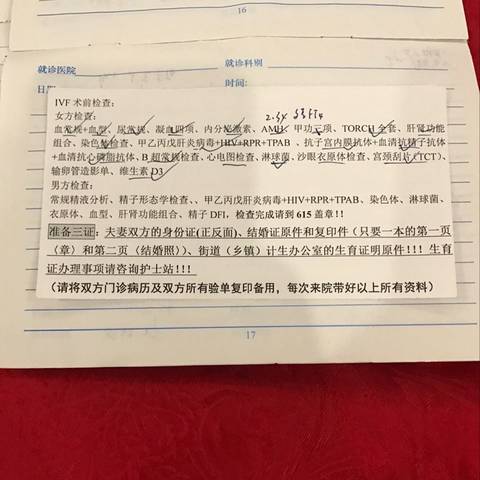 16
就诊医院
就诊科别
日期
时间:
IVF 术前检查:
女方检查:
血常规+血型、尿常规、凝血四项、内分泌激素、AMH、甲功三项、TORCH 全套、肝肾功能
组合、染色体检查、甲乙丙戊肝炎病毒+HIV+RPR+TPAB 、抗子宫内膜抗体+血清抗精子抗体
+血清抗心磷脂抗体、B 超常规检查、心电图检查、淋球菌、沙眼衣原体检查、宫颈刮片(TCT)、
输卵管造影单、维生素 D3
男方检查:
常规精液分析、精子形态学检查、、甲乙丙戊肝炎病毒+HIV+RPR+TPAB、染色体、淋球菌、
衣原体、血型、肝肾功能组合、精子 DFI，检查完成请到 615 盖章!!
准备三证：夫妻双方的身份证(正反面)、结婚证原件和复印件(只要一本的第一页
(章）和第二页（结婚照）)、街道（乡镇）计生办公室的生育证明原件!!! 生育
证办理事项请咨询护士站!!!
(请将双方门诊病历及双方所有验单复印备用，每次来院带好以上所有资料)
17